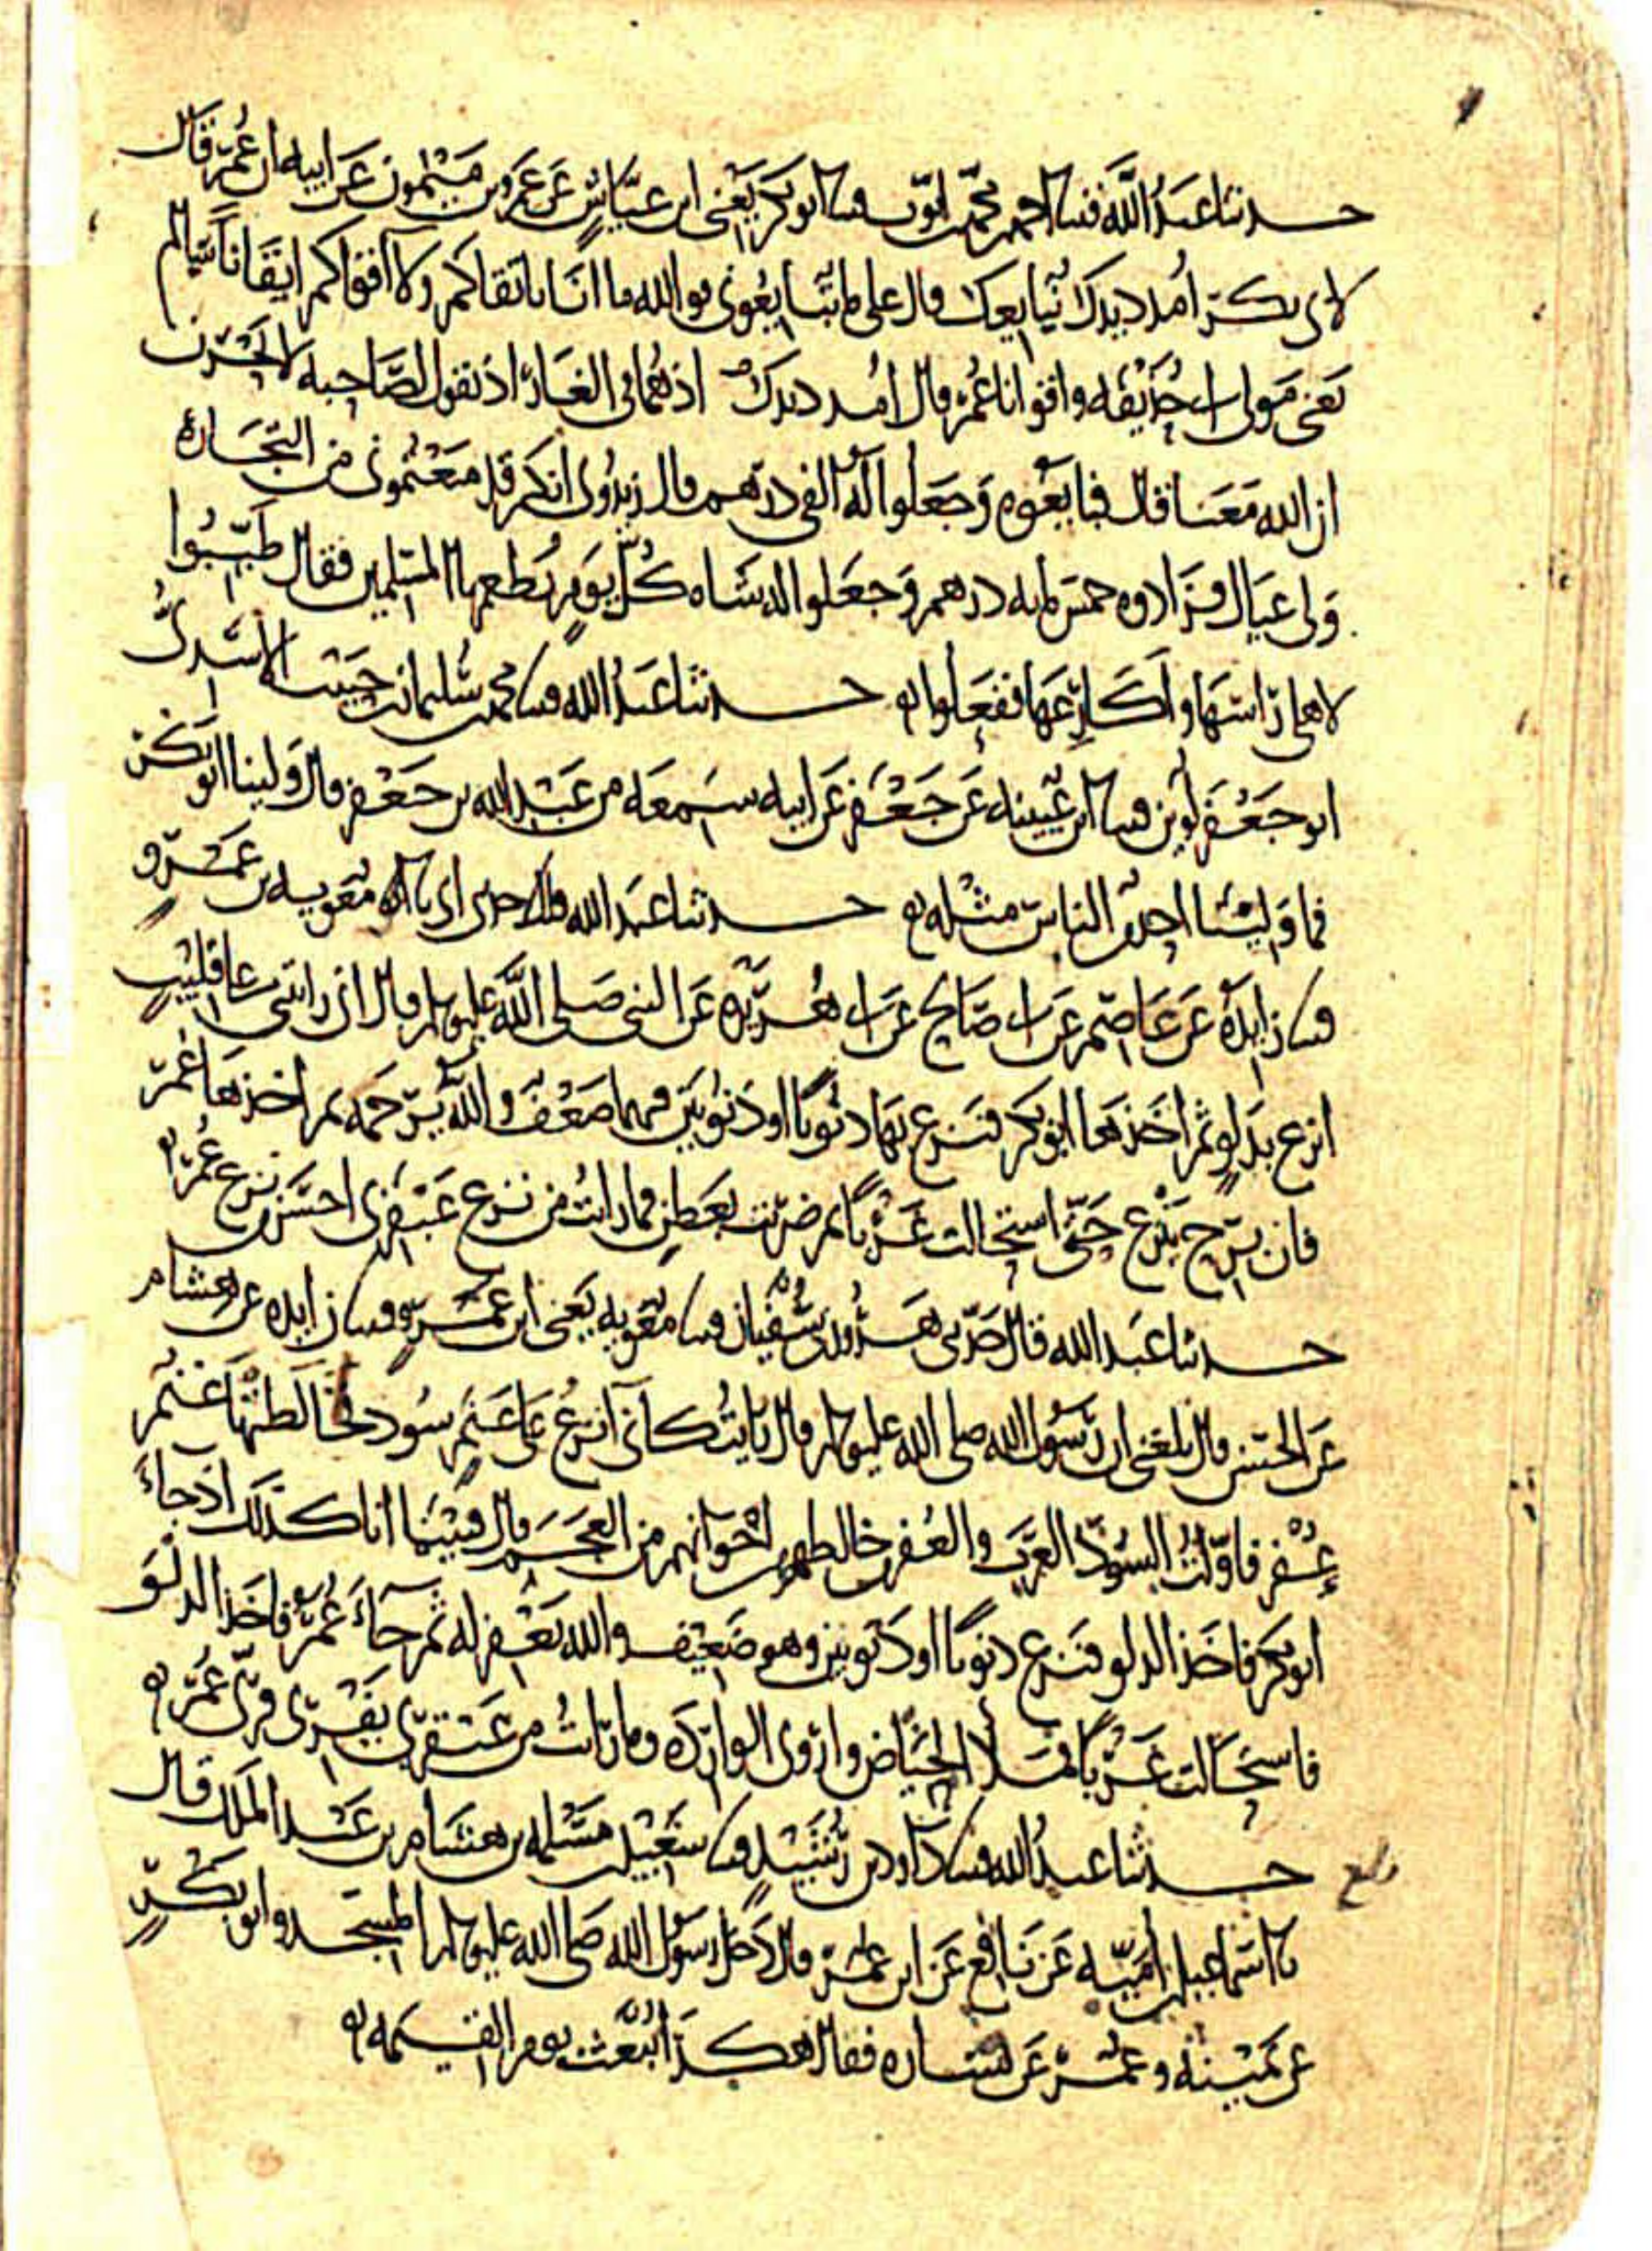 حدثنا عبد الله قثنا احمد بن محمد بن ايوب قثنا ابو بكر يعني ابن عياش عن عمرو بن ميمون عن ابيه ان عمر قال
لابي بكر امدد يدك نبايعك قال على ما تبايعوني فوالله ما انا باتقاكم ولا اقواكم اتقانا سالم
يعني مولى ابي حذيفه واقوانا عمر قال امدد يدك اذ هما في الغار اذ يقول لصاحبه لا تحزن
ان الله معنا قال فبايعوه وجعلوا له الفي درهم قال زيدوني انكم قد منعتموني من التجاره
ولي عيال فزادوه خمس مايه درهم وجعلوا له شاه كل يوم يطعمها المسلمين فقال طيبوا
لاهلي راسها واكارعها ففعلوا حدثنا عبد الله قثنا محمد بن سليمان بن حبيب الاسدي
ابو جعفر لوين قثنا ابن عيينه عن جعفر عن ابيه سمعه من عبد الله بن جعفر قال ولينا ابو بكر
فما ولينا احد من الناس مثله حدثنا عبد الله قال حدثني ابي نا معويه بن عمرو
قثنا زايده عن عاصم عن ابي صالح عن ابي هريره عن النبي صلى الله عليه وسلم قال اني رايتني على قليب
انزع بدلو ثم اخذها ابو بكر فنزع بها ذنوبا او ذنوبين فيهما ضعف والله يرحمه ثم اخذها عمر
فان برح ينزع حتى استحالت غربا ثم ضربت بعطن فما رايت من نزع عبقري احسن من نزع عمر
حدثنا عبد الله قال حدثني هرون بن سفيان قثنا معويه يعني ابن عمرو قثنا زايده عن هشام
عن الحسن قال بلغني ان رسول الله صلى الله عليه وسلم قال رايت كاني انزع على غنم سود خالطتها غنم
عفر فاولت السود العرب والعفر من خالطهم من اخوانهم من العجم قال فبينما انا كذلك اذ جاء
ابو بكر فاخذ الدلو فنزع ذنوبا او ذنوبين وهو ضعيف والله يغفر له ثم جاء عمر فاخذ الدلو
فاستحالت غربا فملا الحياض واروى الوارده وما رايت من عبقري يفري فري عمر
حدثنا عبد الله قثنا داود بن رشيد قثنا سعيد بن مسلمه بن هشام بن عبد الملك قال
نا اسماعيل بن اميه عن نافع عن ابن عمر قال دخل رسول الله صلى الله عليه وسلم المسجد وابو بكر
عن يمينه وعمر عن يساره فقال هكذا نبعث يوم القيمه